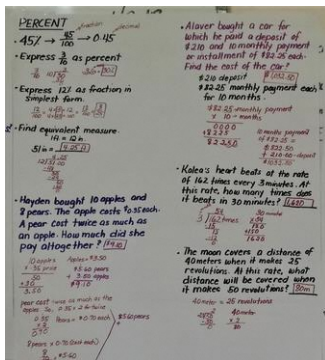 PERCENT
fraction decimal
• 45% → 45/100 → 0.45
• Express 3/10 as percent
• Express 12% as fraction in
simplest form.
• Find equivalent measure.
1ft = 12in.
51in = 4.25 ft
• Hayden bought 10 apples and
8 pears. The apple costs $0.35 each.
A pear cost twice as much as
an apple. How much did she
pay altogether? $9.10
10 apples
x .35 price
50
+30
3.50
Apples = $3.50
$5.60 pears
+ 3.50 apples
$9.10
pear cost twice as much as the
0.35
x 2
0.70
Pears = $0.70 each
8 pears x 0.70 (cost each)
= $5.60
+ $5.60 pears
• Alaver bought a car for
which he paid a deposit of
$210 and 10 monthly payment
or installment of $82.25 each.
Find the cost of the car?
$210 deposit
$1,032.50
$82.25 monthly payment each
for 10 months.
$82.25 monthly payment
x 10 months
0000
+8225
822.50
10 months payment
of $82.25 =
$822.50
+ 210.00 deposit
$1032.50
• Kalea's heart beats at the rate
of 162 times every 3 minutes. At
this rate, how many times does
it beats in 30 minutes? 1,620
• The moon covers a distance of
40 meters when it makes 25
revolutions. At this rate, what
distance will be covered when
it makes 50 revolutions? 80m
40 meter = 25 revolutions